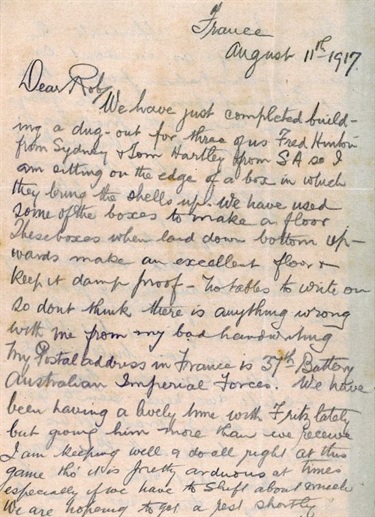 France
August 11th 1917.
Dear Rob,
We have just completed build-
ing a dug-out for three of us Fred Hinton
from Sydney & Tom Hartley from S.A so I
am sitting on the edge of a box in which
they bring the shells up. We have used
some of the boxes to make a floor
These boxes when laid down bottom up-
wards make an excellent floor &
keep it damp proof - no tables to write on
so dont think there is anything wrong
with me from my bad handwriting
My Postal address in France is 37th Battery
Australian Imperial Forces. We have
been having a lively time with Fritz lately
but giving him more than we receive
I am keeping well & do all right at this
game tho' it is pretty arduous at times
especially if we have to shift about much
We are hopeing to get a rest shortly